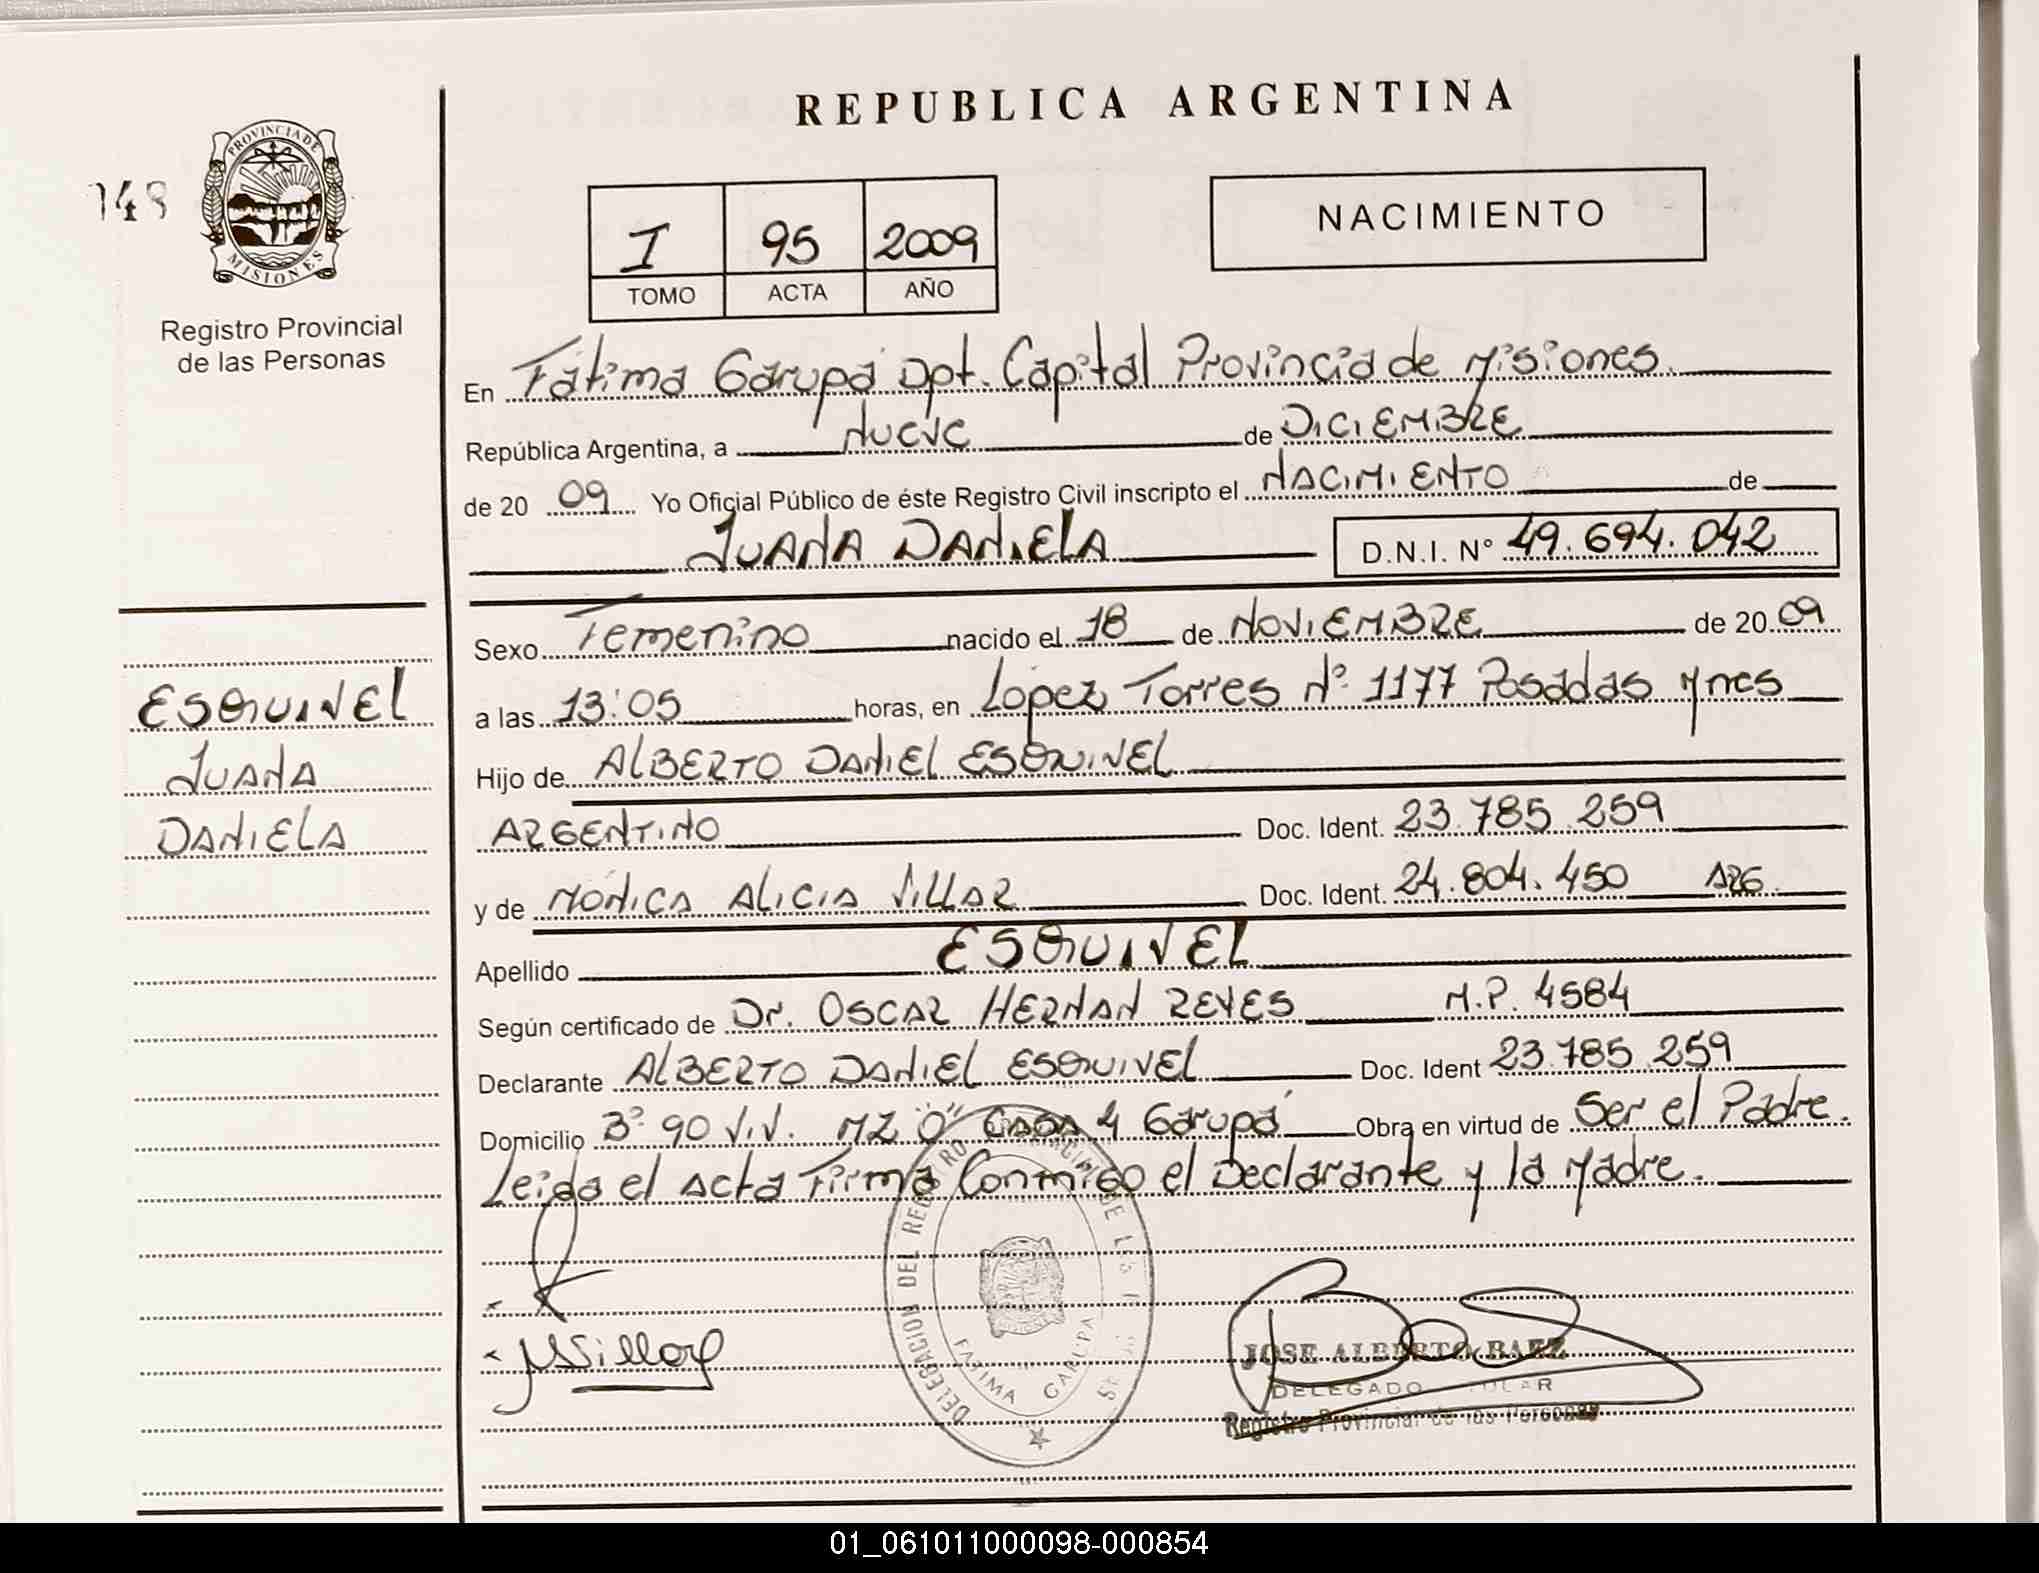 REPUBLICA ARGENTINA
148
PROVINCIA DE
MISIONES
Registro Provincial
de las Personas
I 95 2009
TOMO ACTA AÑO
NACIMIENTO
En Fátima Garupá Dpt. Capital Provincia de Misiones.
República Argentina, a Nueve de DICIEMBRE
de 20 09 Yo Oficial Público de éste Registro Civil inscripto el NACIMIENTO de
JUANA DANIELA D.N.I. N° 49.694.042
Sexo Femenino nacido el 18 de NOVIEMBRE de 20 09
a las 13:05 horas, en López Torres N° 1177 Posadas Mnes
Hijo de ALBERTO DANIEL ESQUIVEL
ARGENTINO Doc. Ident. 23.785.259
y de MÓNICA ALICIA VILLAR Doc. Ident. 24.804.450 ARG.
Apellido ESQUIVEL
Según certificado de Dr. OSCAR HERNAN REYES M.P. 4584
Declarante ALBERTO DANIEL ESQUIVEL Doc. Ident 23.785.259
Domicilio B° 90 VIV. MZ "O" CASA 4 Garupá Obra en virtud de Ser el Padre.
Leida el acta Firma Conmigo el Declarante y la Madre.
ESQUIVEL
JUANA
DANIELA
MVillar
DELEGACION DEL REGISTRO PROVINCIAL DE LAS PERSONAS
FATIMA GARUPA
JOSE ALBERTO BAEZ
DELEGADO TITULAR
Registro Provincial de las Personas
01_061011000098-000854